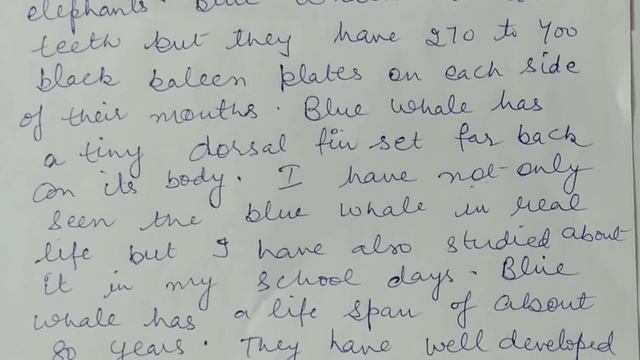 elephants. Blue
teeth but they have 270 to 400
black baleen plates on each side
of their mouths. Blue whale has
a tiny dorsal fin set far back
on its body. I have not only
seen the blue whale in real
life but I have also studied about
it in my school days. Blue
whale has a life span of about
80 years. They have well developed